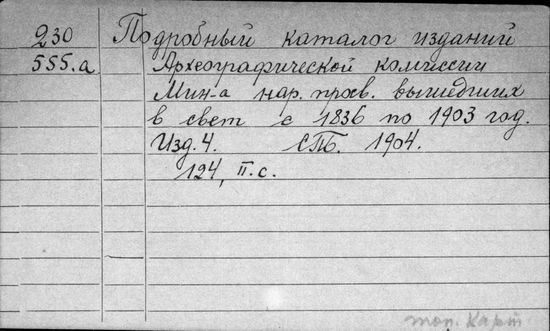 230 Подробный каталог изданий
555.а Археографической комиссии
Мин-а нар. просв. вышедших
в свет с 1836 по 1903 год.
Изд. 4. СПб. 1904.
124, II. с.
топ. карт